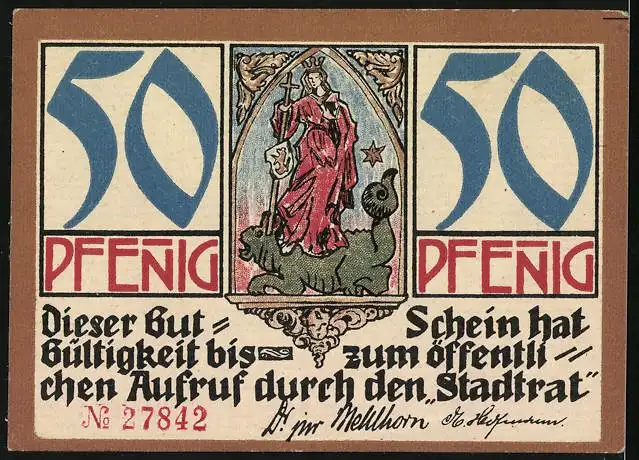 50 50
PFEN̄IG PFEN̄IG
Dieser Gut= Schein hat
Gültigkeit bis zum öffentli=
chen Aufruf durch den „Stadtrat"
№ 27842 Dr jur Mehlhorn